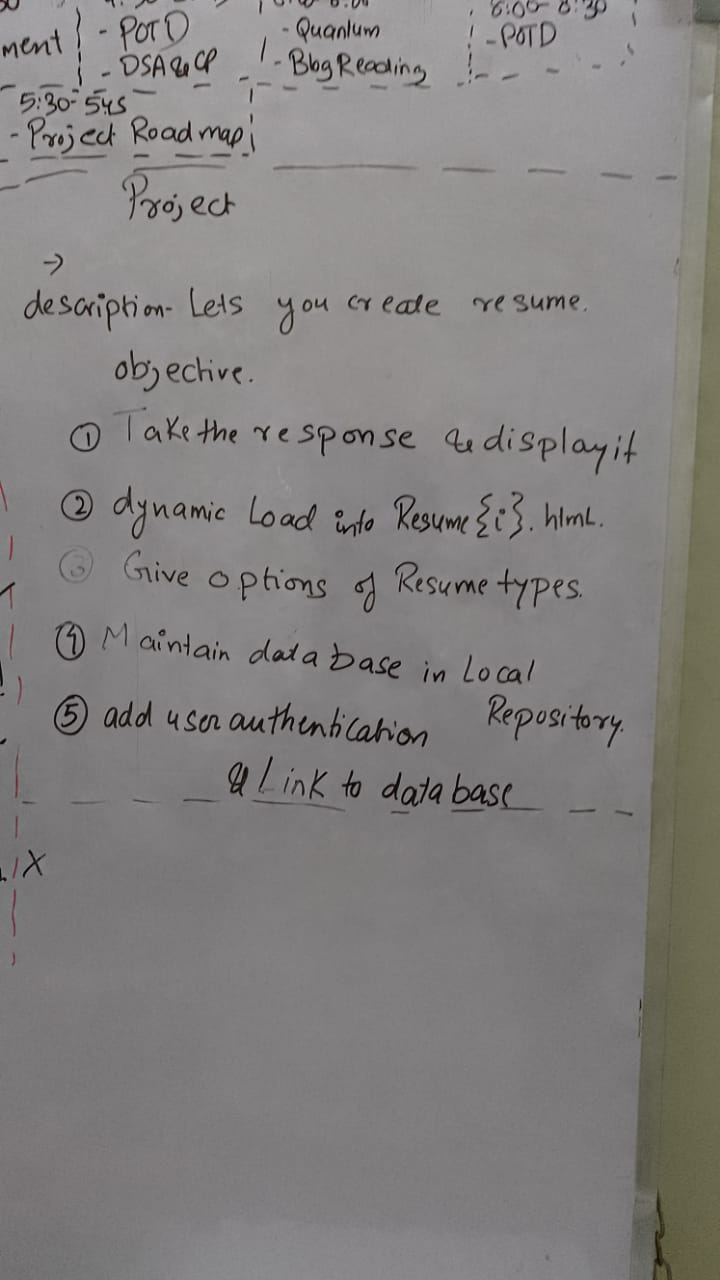 8:00-8:30
ment
- POTD
- Quantum
- POTD
- DSA & CP
- Blog Reading
5:30-545
- Project Roadmap
Project
→
description- Lets you create resume.
objective.
① Take the response & display it
② dynamic Load into Resume{i}.html.
③ Give options of Resume types.
④ Maintain database in Local
Repository.
⑤ add user authentication
& Link to database
X